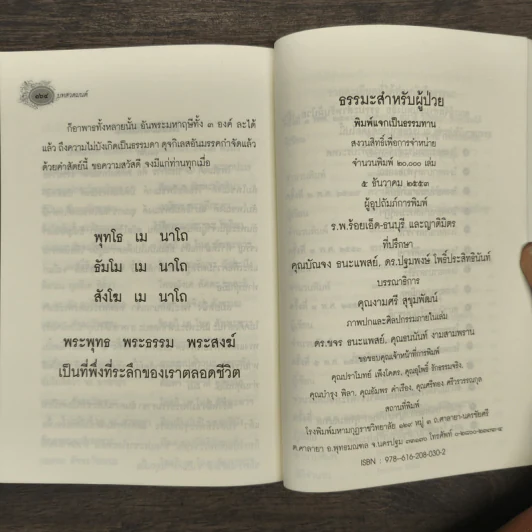 บทสวดมนต์
ก็อาพาธทั้งหลายนั้น อันพระมหาฤษีทั้ง ๓ องค์ ละได้
แล้ว ถึงความไม่บังเกิดเป็นธรรมดา ดุจกิเลสอันมรรคกำจัดแล้ว
ด้วยคำสัตย์นี้ ขอความสวัสดี จงมีแก่ท่านทุกเมื่อ
พุทโธ เม นาโถ
ธัมโม เม นาโถ
สังโฆ เม นาโถ
พระพุทธ พระธรรม พระสงฆ์
เป็นที่พึ่งที่ระลึกของเราตลอดชีวิต
ธรรมะสำหรับผู้ป่วย
พิมพ์แจกเป็นธรรมทาน
สงวนสิทธิ์เพื่อการจำหน่าย
จำนวนพิมพ์ ๒๐,๐๐๐ เล่ม
๕ ธันวาคม ๒๕๕๓
ผู้อุปถัมภ์การพิมพ์
ร.พ.ร้อยเอ็ด-ธนบุรี และญาติมิตร
ที่ปรึกษา
คุณบัณจง ธนะแพสย์, ดร.ปฐมพงษ์ โพธิ์ประสิทธินันท์
บรรณาธิการ
คุณงามศรี สุขุมพัฒน์
ภาพปกและศิลปกรรมภายในเล่ม
ดร.ขจร ธนะแพสย์, คุณธนนันท์ งามสามพราน
ขอขอบคุณเจ้าหน้าที่การพิมพ์
คุณปราโมทย์ เพ็งโคตร, คุณอุไพร์ รักธรรมจริง,
คุณบำรุง พิลา, คุณอัมพร คำเรือง, คุณศรีทอง ศรีวาวรณกุล
สถานที่พิมพ์
โรงพิมพ์มหามกุฏราชวิทยาลัย ๑๒๙ หมู่ ๓ ถ.ศาลายา-นครชัยศรี
ต.ศาลายา อ.พุทธมณฑล จ.นครปฐม ๗๓๑๗๐ โทรศัพท์
ISBN : 978-616-208-030-2